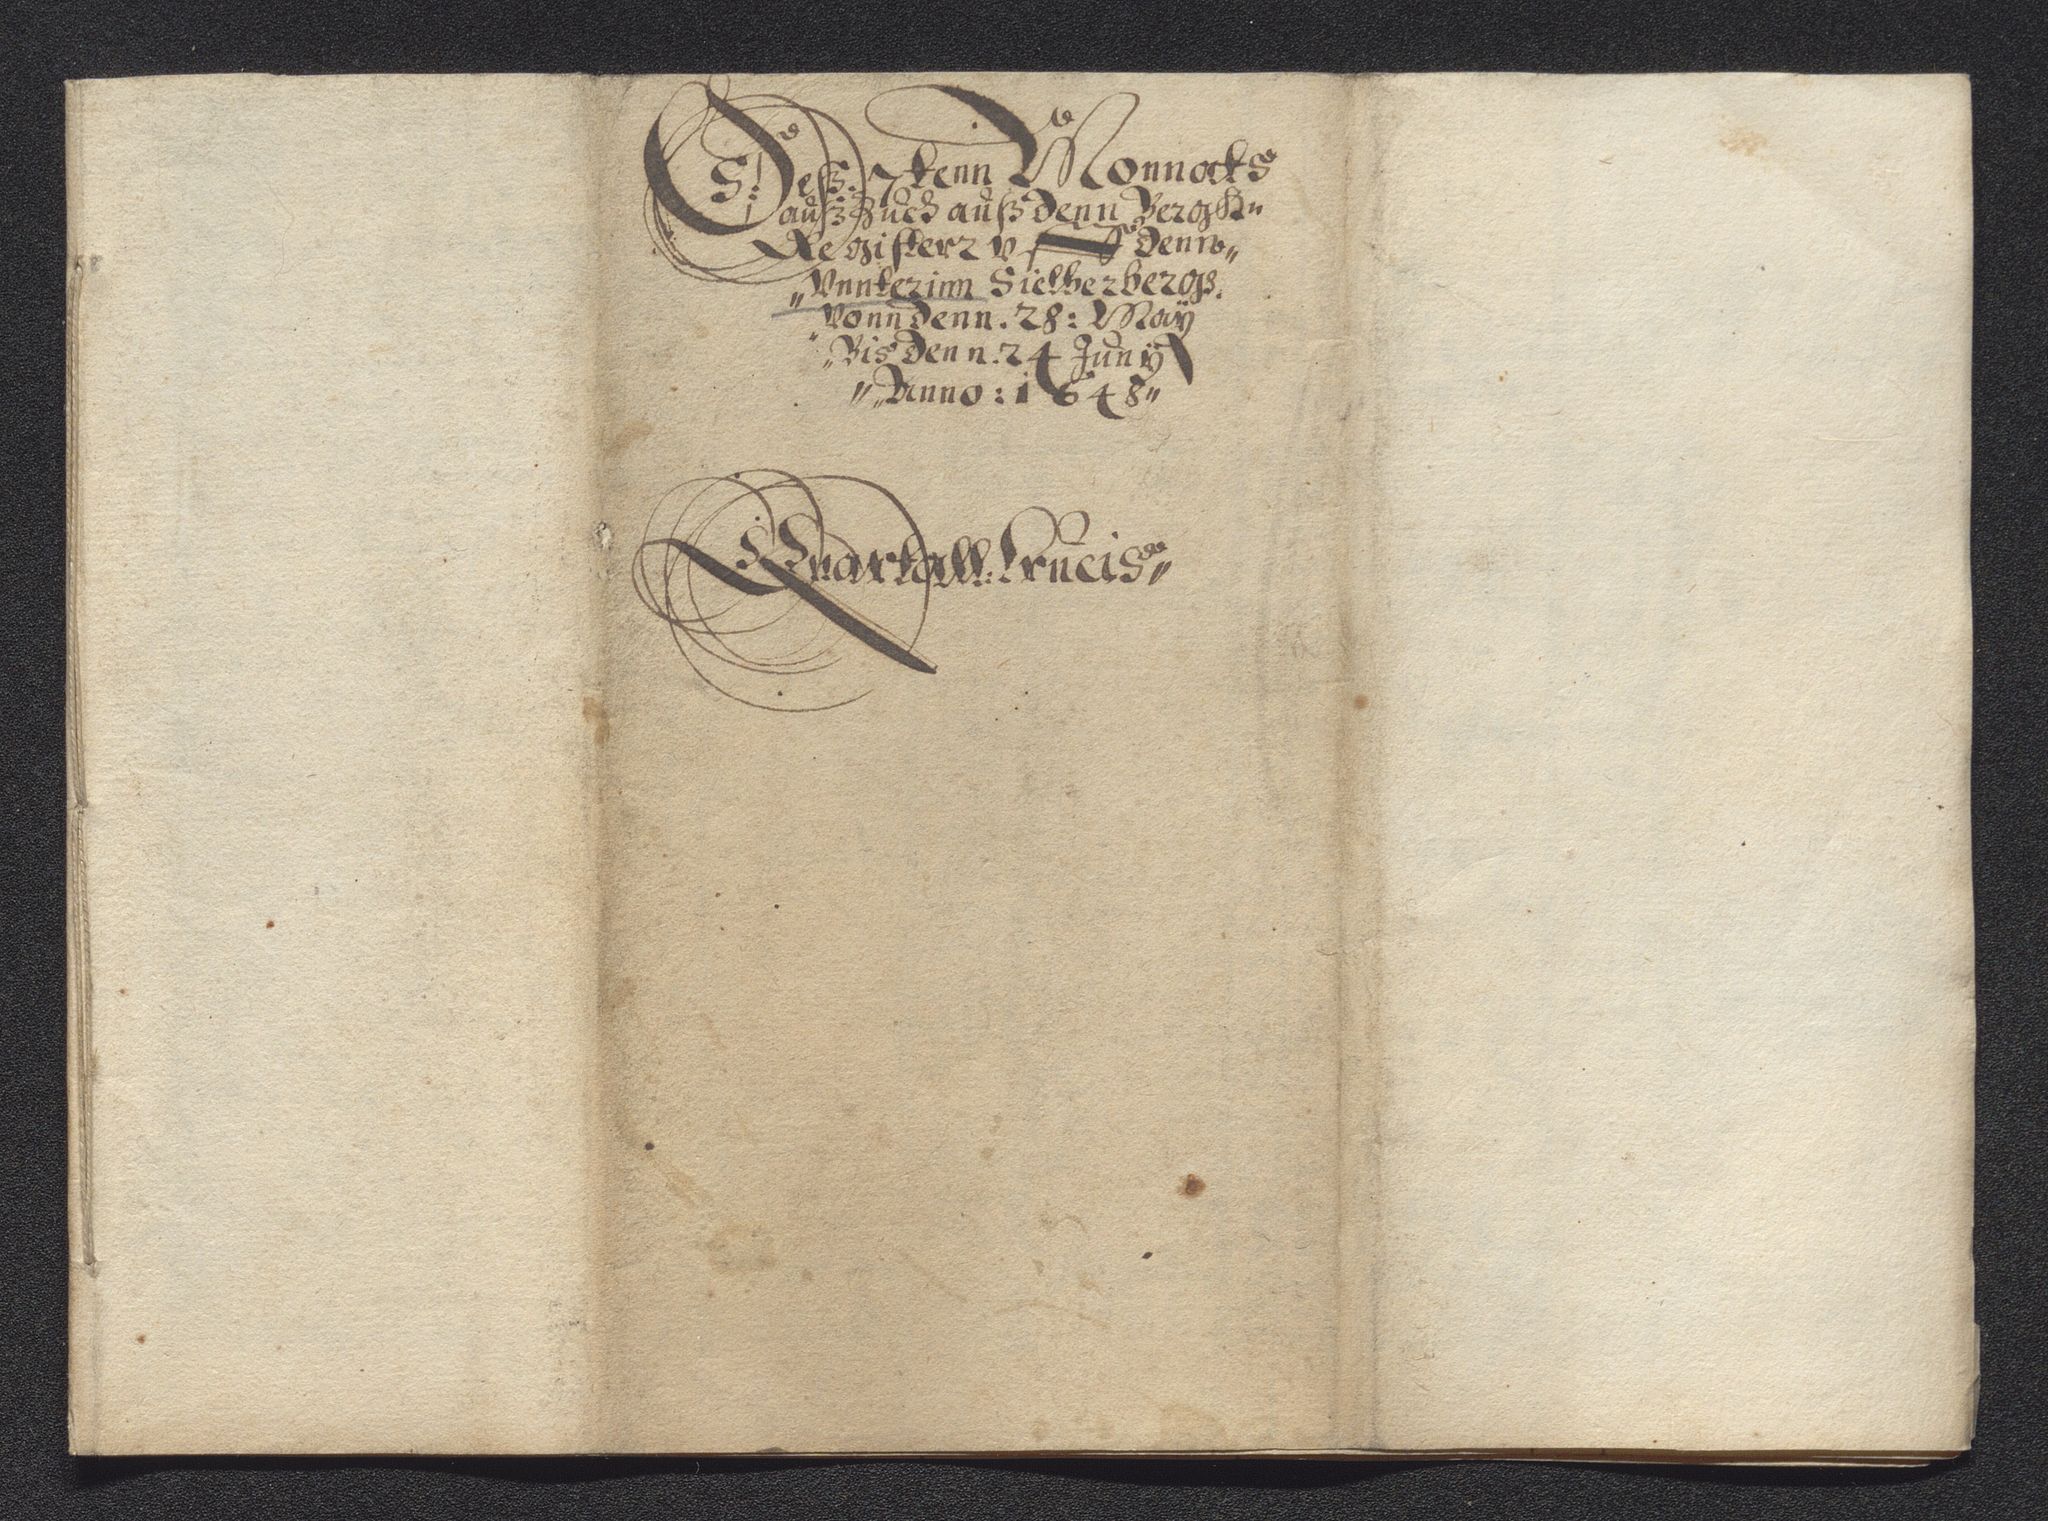 Deß 7tenn Monnats
auß Zuch auß denn Bergk
Registerr v denn
Vnnterinn Sielberbergs.
Vonn denn. 28: May
Bis denn. 24 Juny
Anno: 1648
Quartall: Crucis